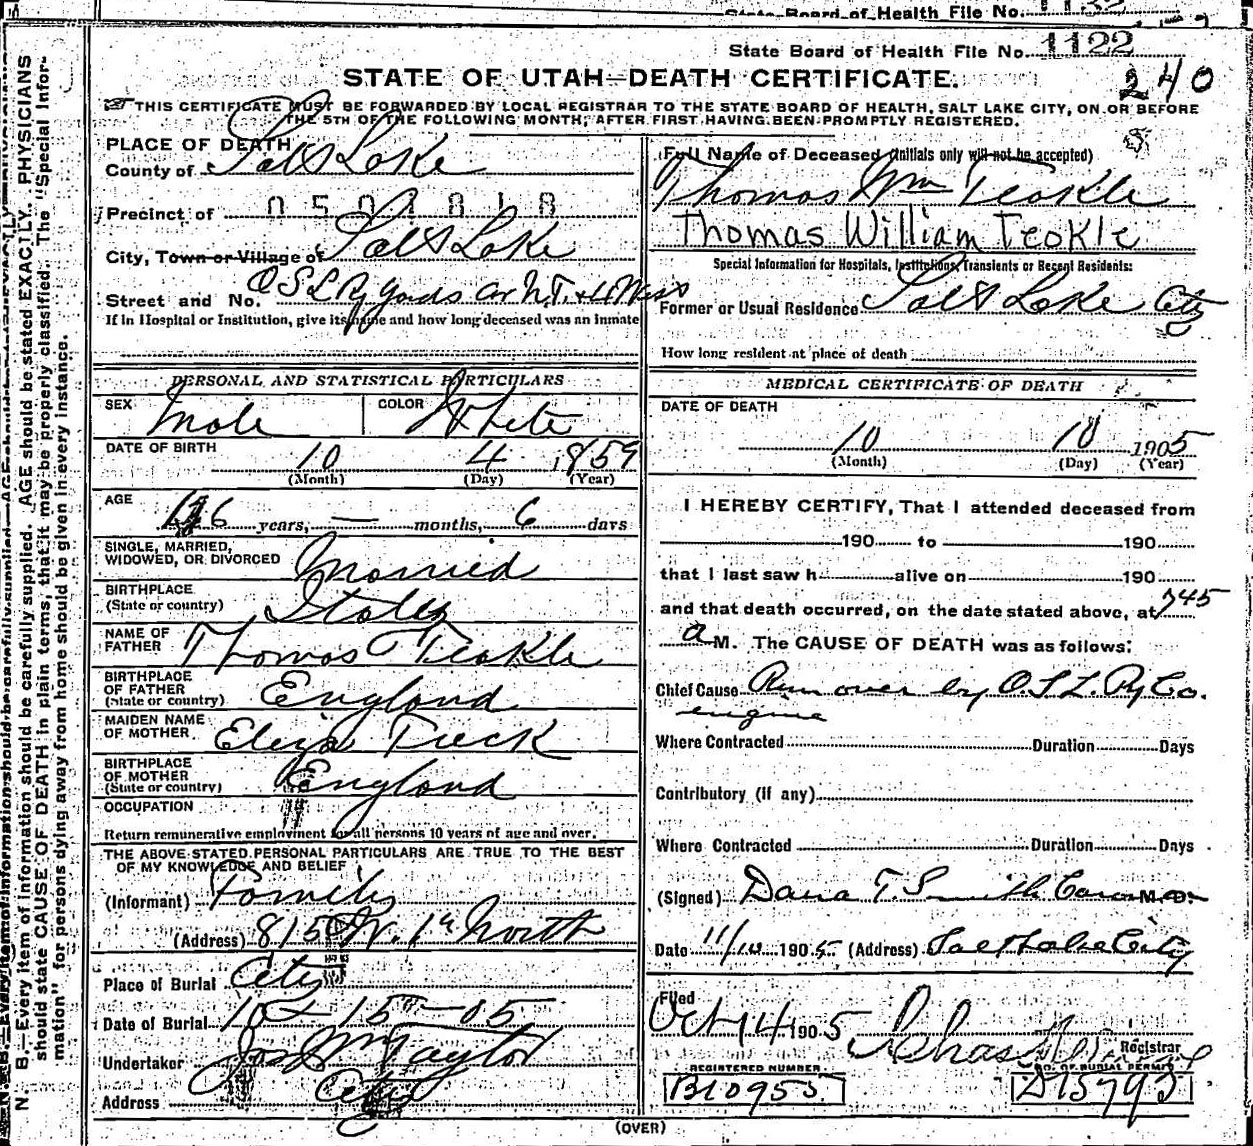 State Board of Health File No.
State Board of Health File No. 1122
240
STATE OF UTAH—DEATH CERTIFICATE.
THIS CERTIFICATE MUST BE FORWARDED BY LOCAL REGISTRAR TO THE STATE BOARD OF HEALTH, SALT LAKE CITY, ON OR BEFORE
THE 5TH OF THE FOLLOWING MONTH, AFTER FIRST HAVING BEEN PROMPTLY REGISTERED.
PLACE OF DEATH
County of Salt Lake
Precinct of 0501818
City, Town or Village of Salt Lake
Street and No. O S L Ry yards
If in Hospital or Institution, give its name and how long deceased was an inmate
PERSONAL AND STATISTICAL PARTICULARS
SEX Male COLOR White
DATE OF BIRTH 10 4 1859
(Month) (Day) (Year)
AGE 46 years, — months, 6 days
SINGLE, MARRIED,
WIDOWED, OR DIVORCED Married
BIRTHPLACE
(State or country) States
NAME OF
FATHER Thomas Teakle
BIRTHPLACE
OF FATHER
(State or country) England
MAIDEN NAME
OF MOTHER Eliza Treck
BIRTHPLACE
OF MOTHER
(State or country) England
OCCUPATION
Return remunerative employment for all persons 10 years of age and over.
THE ABOVE STATED PERSONAL PARTICULARS ARE TRUE TO THE BEST
OF MY KNOWLEDGE AND BELIEF
(Informant) Family
(Address) 815 W. 1st North
Place of Burial City
Date of Burial 10 - 15 - 05
Undertaker Jos Wm Taylor
Address City
Full Name of Deceased (Initials only will not be accepted)
Thomas Wm Teakle
Thomas William Teakle
Special Information for Hospitals, Institutions, Transients or Recent Residents:
Former or Usual Residence Salt Lake City
How long resident at place of death
MEDICAL CERTIFICATE OF DEATH
DATE OF DEATH
10 10 1905
(Month) (Day) (Year)
I HEREBY CERTIFY, That I attended deceased from
190 to 190
that I last saw h alive on 190
and that death occurred, on the date stated above, at 745
a M. The CAUSE OF DEATH was as follows:
Chief Cause Run over by O.S.L. Ry Co.
engine
Where Contracted Duration Days
Contributory (if any)
Where Contracted Duration Days
(Signed) Dana T. Smith Coroner M.D.
Date 11/10 1905 (Address) Salt Lake City
Filed
Oct 14 1905 Chas
Registrar
REGISTERED NUMBER NO. OF BURIAL PERMIT
B10955 D15793
(OVER)
N. B.—Every item of information should be carefully supplied. AGE should be stated EXACTLY. PHYSICIANS
should state CAUSE OF DEATH in plain terms, that it may be properly classified. The "Special Infor-
mation" for persons dying away from home should be given in every instance.